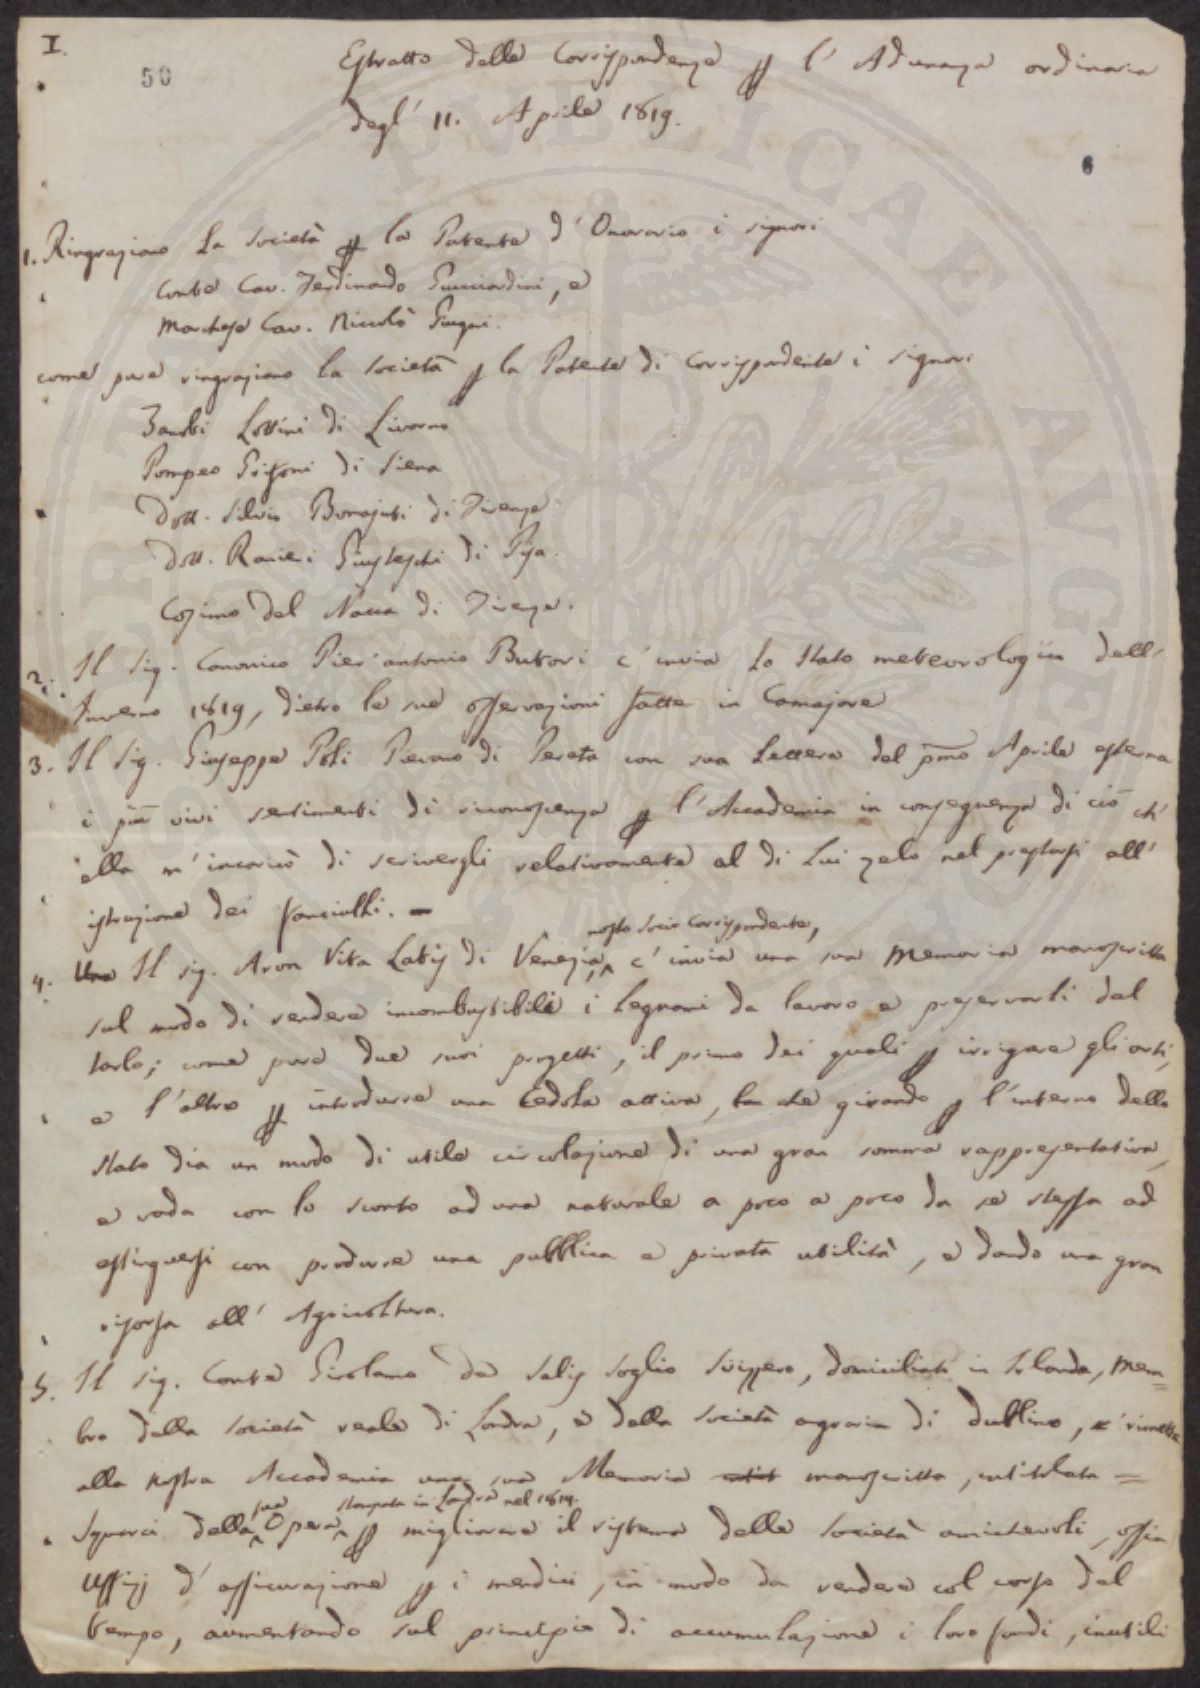 I.
50
Estratto della Corrispondenza p l'Adunanza ordinaria
degl' 11. Aprile 1819.
6
1. Ringraziano la Società p la Patente d'Onorario i signori
Conte Cav. Ferdinando Guicciardini, e
Marchese Cav. Niccolò Giugni.
come pure ringraziano la Società p la Patente di Corrispondente i signori
Zanobi Lottini di Livorno
Pompeo Grifoni di Siena
Dott. Silvio Bonajuti di Firenze
Dott. Ranieri di Pisa.
Cosimo del Nacca di Firenze.
2. Il Sig. Canonico Pier'antonio Butori c'invia lo Stato meteorologico dell'
Inverno 1819, dietro le sue osservazioni fatte in Camajore
3. Il Sig. Giuseppe Poli Pievano di Pereta con sua Lettera del pmo Aprile esterna
i più vivi sentimenti di riconoscenza p l'Accademia in conseguenza di ciò ch'
ella m'incaricò di scrivergli relativamente al di Lui zelo nel prestarsi all'
istruzione dei fanciulli. —
nostro Socio Corrispondente,
4. Una Il sig. Aron Vita Latis di Venezia, c'invia una sua Memoria manoscritta
sul modo di rendere incombustibili i Legnami da lavoro e preservarli dal
tarlo; come pure due suoi progetti, il primo dei quali p irrigare gli orti,
e l'altro p introdurre una Cedola attiva, che girando p l'interno dello
Stato dia un modo di utile circolazione di una gran somma rappresentativa,
e vada con lo sconto ad una naturale a poco a poco da se stessa ad
estinguersi con produrre una pubblica e privata utilità, e dando una gran
risorsa all'Agricoltura.
5. Il sig. Conte Girolamo de Salis Soglio Svizzero, domiciliato in Irlanda, Mem=
bro della Società reale di Londra, e della Società agraria di Dublino, rimette
alla nostra Accademia una sua Memoria manoscritta, intitolata =
sua stampata in Londra nel 1814.
Squarci della Opera p migliorare il sistema delle Società amichevoli, ossia
Uffizj d'assicurazione p i mendici, in modo da rendere col corso del
tempo, aumentando sul principio di accumulazione i loro fondi, inutili